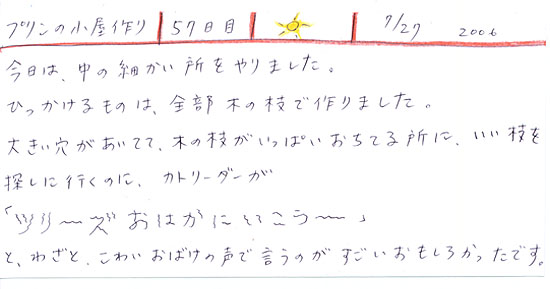 プリンの小屋作り 57日目 7/27 2006
今日は、中の細かい所をやりました。
ひっかけるものは、全部木の枝で作りました。
大きい穴があいてて、木の枝がいっぱいおちてる所に、いい枝を
探しに行くのに、カトリーダーが
「 おはかにいこうー」
と、わざと、こわいおばけの声で言うのがすごいおもしろかったです。